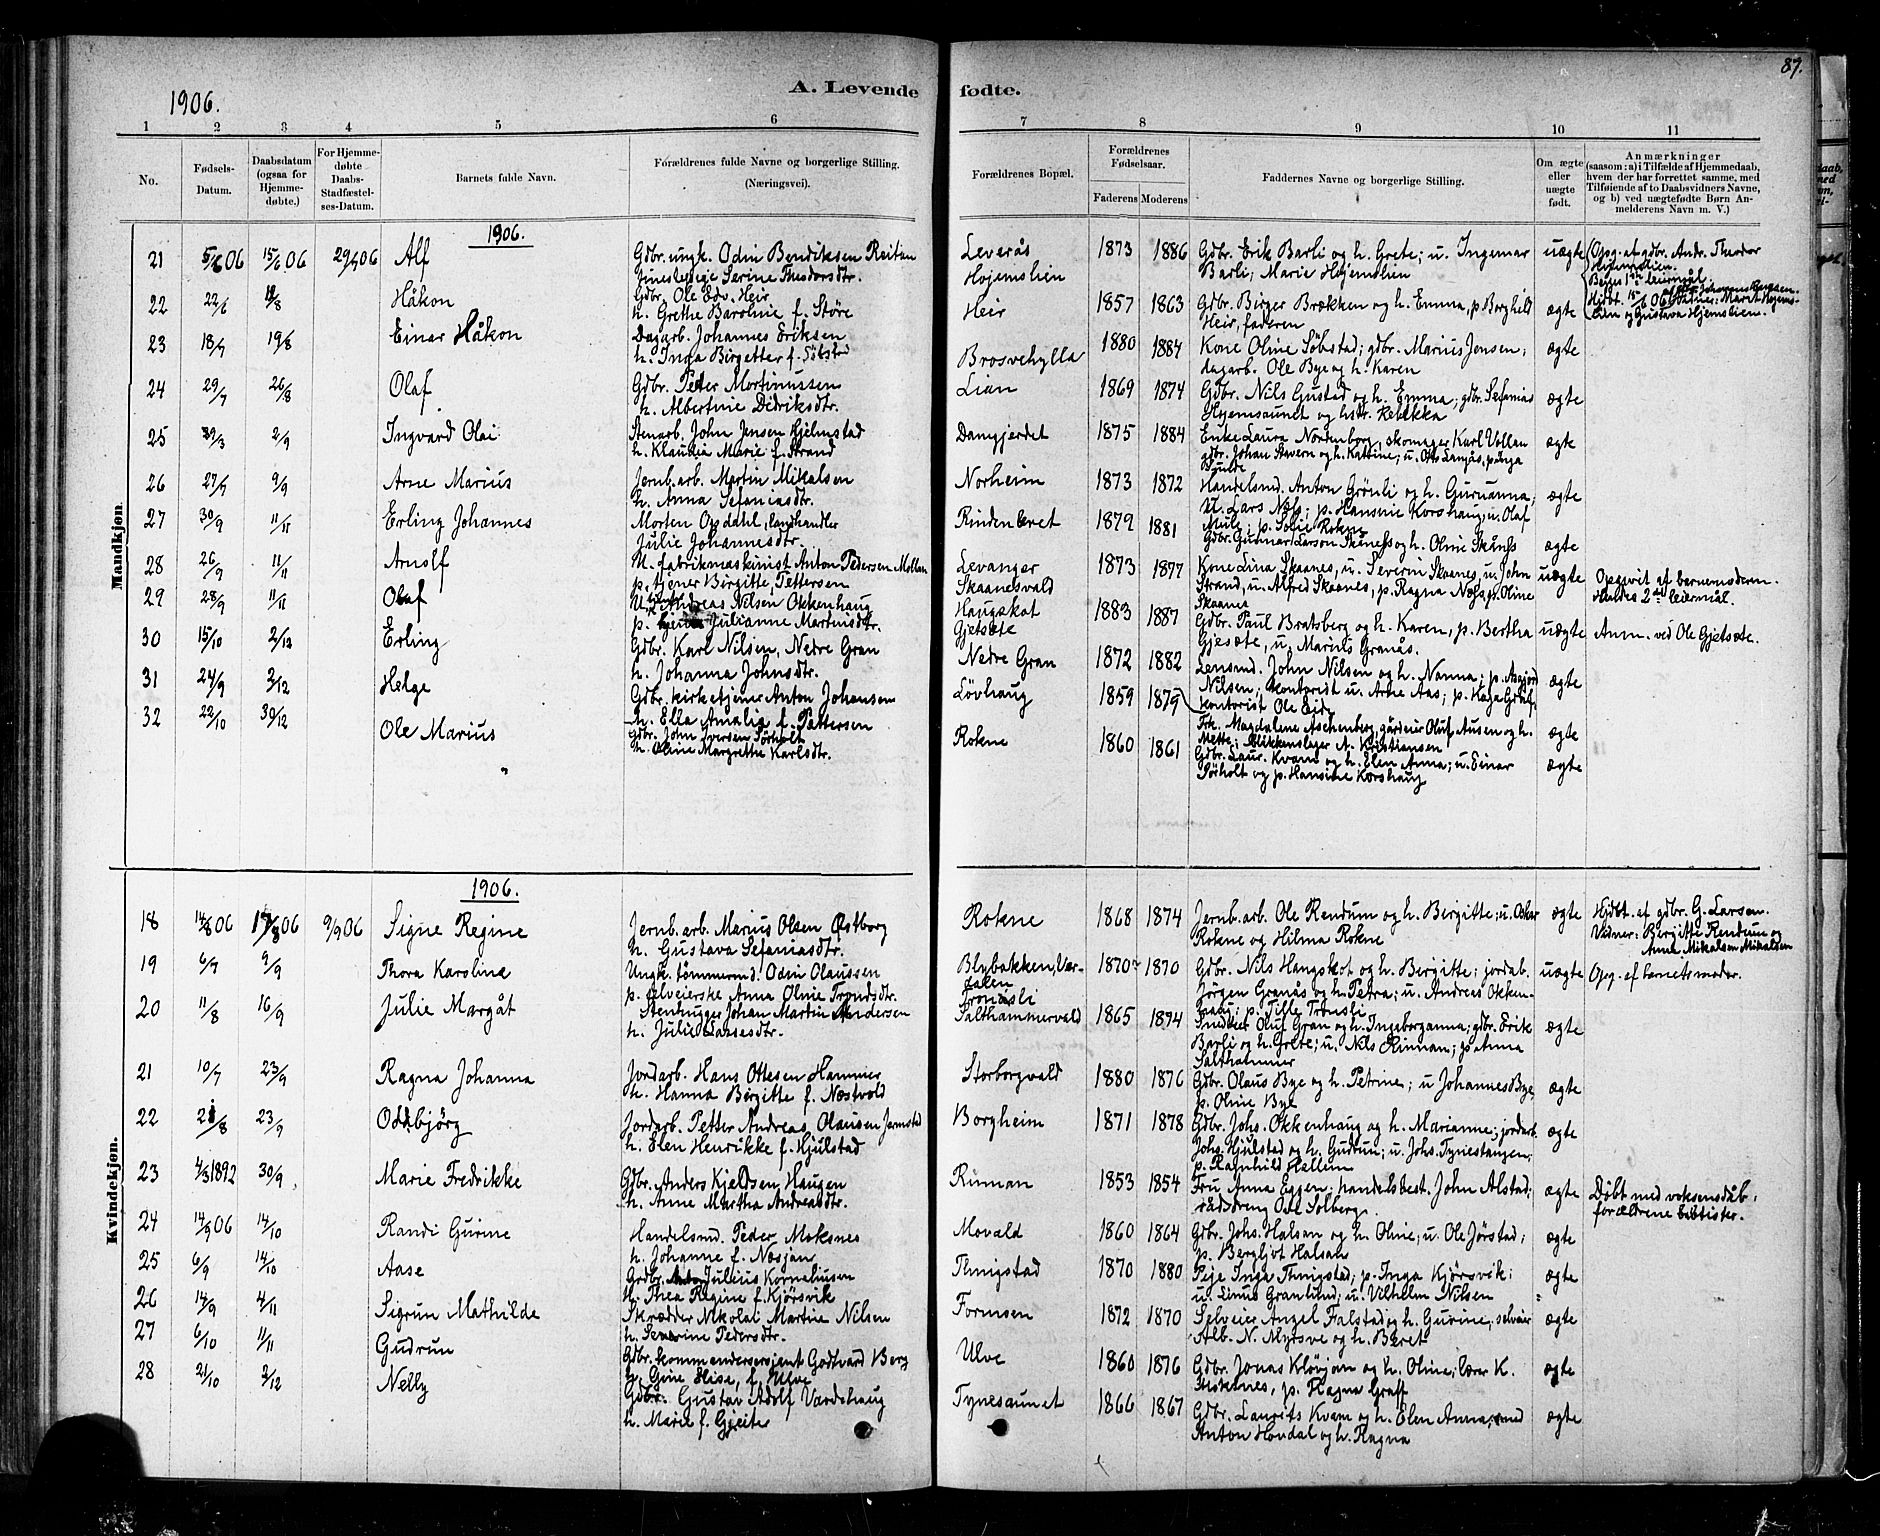 87.
1906.
A. Levende fødte.
1 2 3 4 5 6 7 8 9 10 11
No.
Fødsels-
Datum.
Daabsdatum
(ogsaa for
Hjemme-
døbte.)
For Hjemme-
døbte
Daabs-
Stadfæstel-
ses-Datum.
Barnets fulde Navn.
Forældrenes fulde Navne og borgerlige Stilling.
(Næringsvei).
Forældrenes Bopæl.
Forældrenes
Fødselsaar.
Faderens Moderens
Faddernes Navne og borgerlige Stilling.
Om ægte
eller
uægte
født.
Anmærkninger
(saasom: a) i Tilfælde af Hjemmedaab,
hvem der har forrettet samme, med
Tilføiende af to Daabsvidners Navne,
og b) ved uægtefødte Børn An-
melderens Navn m. V.)
Mandkjøn.
1906.
21 5/6 06 15/6 06 Alf
Gdbr. ungk. Odin Bendiksen Reitan
Serine Theodorsdtr.
Leverås
Hojemslien
1873 1886
Gdbr. Erik Barli og h. Grete; u. Ingemar
Barli; Marie Hojemslien
uægte
Opg. af gdbr. Andr. Theodor
Hojemslien.
22 22/6 Håkon
Gdbr. Ole Edv. Heir
h. Grethe Baroline f. Støre
Heir
1857 1863
Gdbr. Birger Brækken og h. Emma, p. Borghild
Heir, faderen
ægte
23 18/7 19/8 Einar Håkon
Dagarb. Johannes Eriksen
h. Inga Birgette f. Søbstad
Brosvehylla
1880 1884
Kone Oline Søbstad; gdbr. Marius Jensen;
dagarb. Ole Bye og h. Karen
ægte
24 29/7 26/8 Olaf
Gdbr. Peter Mortinussen
h. Albertine Didriksdtr.
Lian
1869 1874
Gdbr. Nils Gustad og h. Emma; gdbr. Sefanias
Hojemsaunet og hstr. Rebekka
ægte
25 2/9 Ingvard Olai
Stenarb. John Jensen Hjelmstad
h. Klaudia Marie f. Strand
Damgjerdet
1875 1884
Enke Laura Nordenborg, skomager Karl Vollan
gdbr. Johan Stavern og h. Kattine; u. Otto Langås, p. Inga
ægte
26 27/7 9/9 Arne Marius
Jernb. arb. Martin Mikalsen
h. Anna Sefaniasdtr.
Norheim
1873 1872
Handelsmd. Anton Grønli og h. Guruanna;
u. Lars Næss; p. Hansine Korshaug; u. Olaf
Mule; p. Sofie Rokne
ægte
27 30/9 11/11 Erling Johannes
Morten Opdahl, landhandler
Julie Johannesdtr.
Rindenberet
1879 1881
Gdbr. Gunnar Larson Skånes og h. Oline Skånes
ægte
28 26/9 11/11 Arnolf
U. fabrikmaskinist Anton Pedersen Mollan
p. tjener Birgitte Pettersen
Levanger
Skaanesvald
1873 1877
Kone Lina Skaanes, u. Severin Skaanes, u. John
Strand, u. Alfred Skaanes, p. Ragna Næss, p. Oline
Skaanes
uægte
Opgivet af barnemoderen.
Hendes 2det leiermål.
29 28/9 11/11 Olaf
Andreas Nilsen Okkenhaug
p. Julianne Martinsdtr.
Haugskot
Gjetsæte
1883 1887
Gdbr. Paul Bratsberg og h. Karen, p. Bertha
Gjesæte, u. Marius Granås.
uægte
Anm. ved Ole Gjetsæte.
30 15/10 2/12 Erling
Gdbr. Karl Nilsen, Nedre Gran
h. Johanna Johnsdtr.
Nedre Gran
1872 1882
Lensmd. John Nilsen og h. Nanna; p. Aagot
Nilsen; kontorist u. Arne Aas; p. Kaga Graff
kontorist Ole Eide
ægte
31 24/9 2/12 Helge
Gdbr. kirketjener Anton Johansen
h. Ella Amalia f. Pettersen
Løvhaug
1859 1879
Frk. Magdalene Aschenberg, gårdeier Oluf Ausen og h.
Mette; blikkenslager A. Kristiansen
ægte
32 22/10 30/12 Ole Marius
Gdbr. John Iversen Sørholt
h. Oline Margrethe Karlsdtr.
Rokne
1860 1861
Gdbr. Laur. Kvam og h. Elen Anna; u. Einar
Sørholt og p. Hansine Korshaug
ægte
Kvindekjøn.
1906.
18 14/8 06 17/8 06 9/9 06 Signe Regine
Jernb. arb. Marius Olsen Østborg
h. Gustava Sefaniasdtr.
Rokne
1868 1874
Jernb. arb. Ole Rendum og h. Birgitte; u. Oskar
Rokne og Hilma Rokne
ægte
Hjdbt. af gdbr. G. Larsen.
Vidner: Bergitte Rendum og
Anne Mikalsen Mikalsen
19 6/7 9/9 Thora Karoline
Ungk. tømmermd. Odin Olaussen
p. selveierske Anna Oline Trondsdtr.
Blybakken, Vær-
dalen
Trønsli
1870 1870
Gdbr. Nils Haugskot og h. Bergitte; jordab.
Jørgen Granås og h. Petra; u. Andreas Okken-
haug; p. Tille Trønsli
uægte
Opg. af barnets moder.
20 11/8 16/9 Julie Margåt
Stenhugger Johan Martin Andersen
h. Julie Larsesdtr.
Salthammervald
1865 1874
Oluf Gran og h. Ingeborganna; gdbr. Erik
Barli og h. Grete; u. Nils Rinnan; p. Anna
Salthammer
ægte
21 10/7 23/9 Ragna Johanna
Jordarb. Hans Ottesen Hammer
h. Hanna Birgitte f. Nøstvold
Storborgvald
1880 1876
Gdbr. Olaus Bye og h. Petrine; u. Johannes Bye
p. Oline Bye
ægte
22 21/8 23/9 Oddbjørg
Jordarb. Petter Andreas Olausen Jermstad
h. Elen Henrikke f. Hjulstad
Borgheim
1871 1878
Gdbr. Johs. Okkenhaug og h. Marianne; jordarb.
Johs. Hjulstad og h. Gudrun; u. Johs. Tynestangen;
p. Ragnhild Hellem
ægte
23 4/3 1892 30/9 Marie Fredrikke
Gdbr. Anders Kjeldsen Haugen
h. Anne Martha Andreasdtr.
Rinnan
1853 1854
Fru Anna Eggen; handelsbest. John Alstad;
rådsdreng Ole Solberg.
ægte
Døbt med voksensdåb;
forældrene babtister.
24 14/9 06 14/10 Randi Gurine
Handelsmd. Peder Moksnes
h. Johanne f. Nosjan
Movald
1860 1864
Gdbr. Johs. Halsan og h. Oline; u. Ole Jørstad;
p. Bergljot Halsan
ægte
25 6/9 14/10 Aase
Gdbr. Julius Korneliussen
h. Thea Regine f. Kjørsvik
Tingstad
1870 1880
Pige Inga Tingstad; p. Inga Kjørsvik;
u. Linus Granlund; u. Vilhelm Nilsen
ægte
26 14/9 4/11 Sigrun Mathilde
Skrædder Nikolai Martin Nilsen
h. Severine Pedersdtr.
Formoen
1872 1870
Selveier Angel Falstad og h. Gurine, selveier
Alb. N. Myrsve og h. Beret
ægte
27 6/10 11/11 Gudrun
Gdbr. kommandersersjent Godtvard Berg
h. Gine Elise, f. Ulve
Ulve
1860 1876
Gdbr. Jonas Kløvjan og h. Oline; lærer K.
Moksnes, p. Ragna Graff
ægte
28 21/10 2/12 Nelly
Gdbr. Gustav Adolf Vordahaug
h. Marie f. Gjeite
Tynesaunet
1866 1867
Gdbr. Laurits Kvam og h. Elen Anna, smed
Anton Hovdal og h. Ragna
ægte